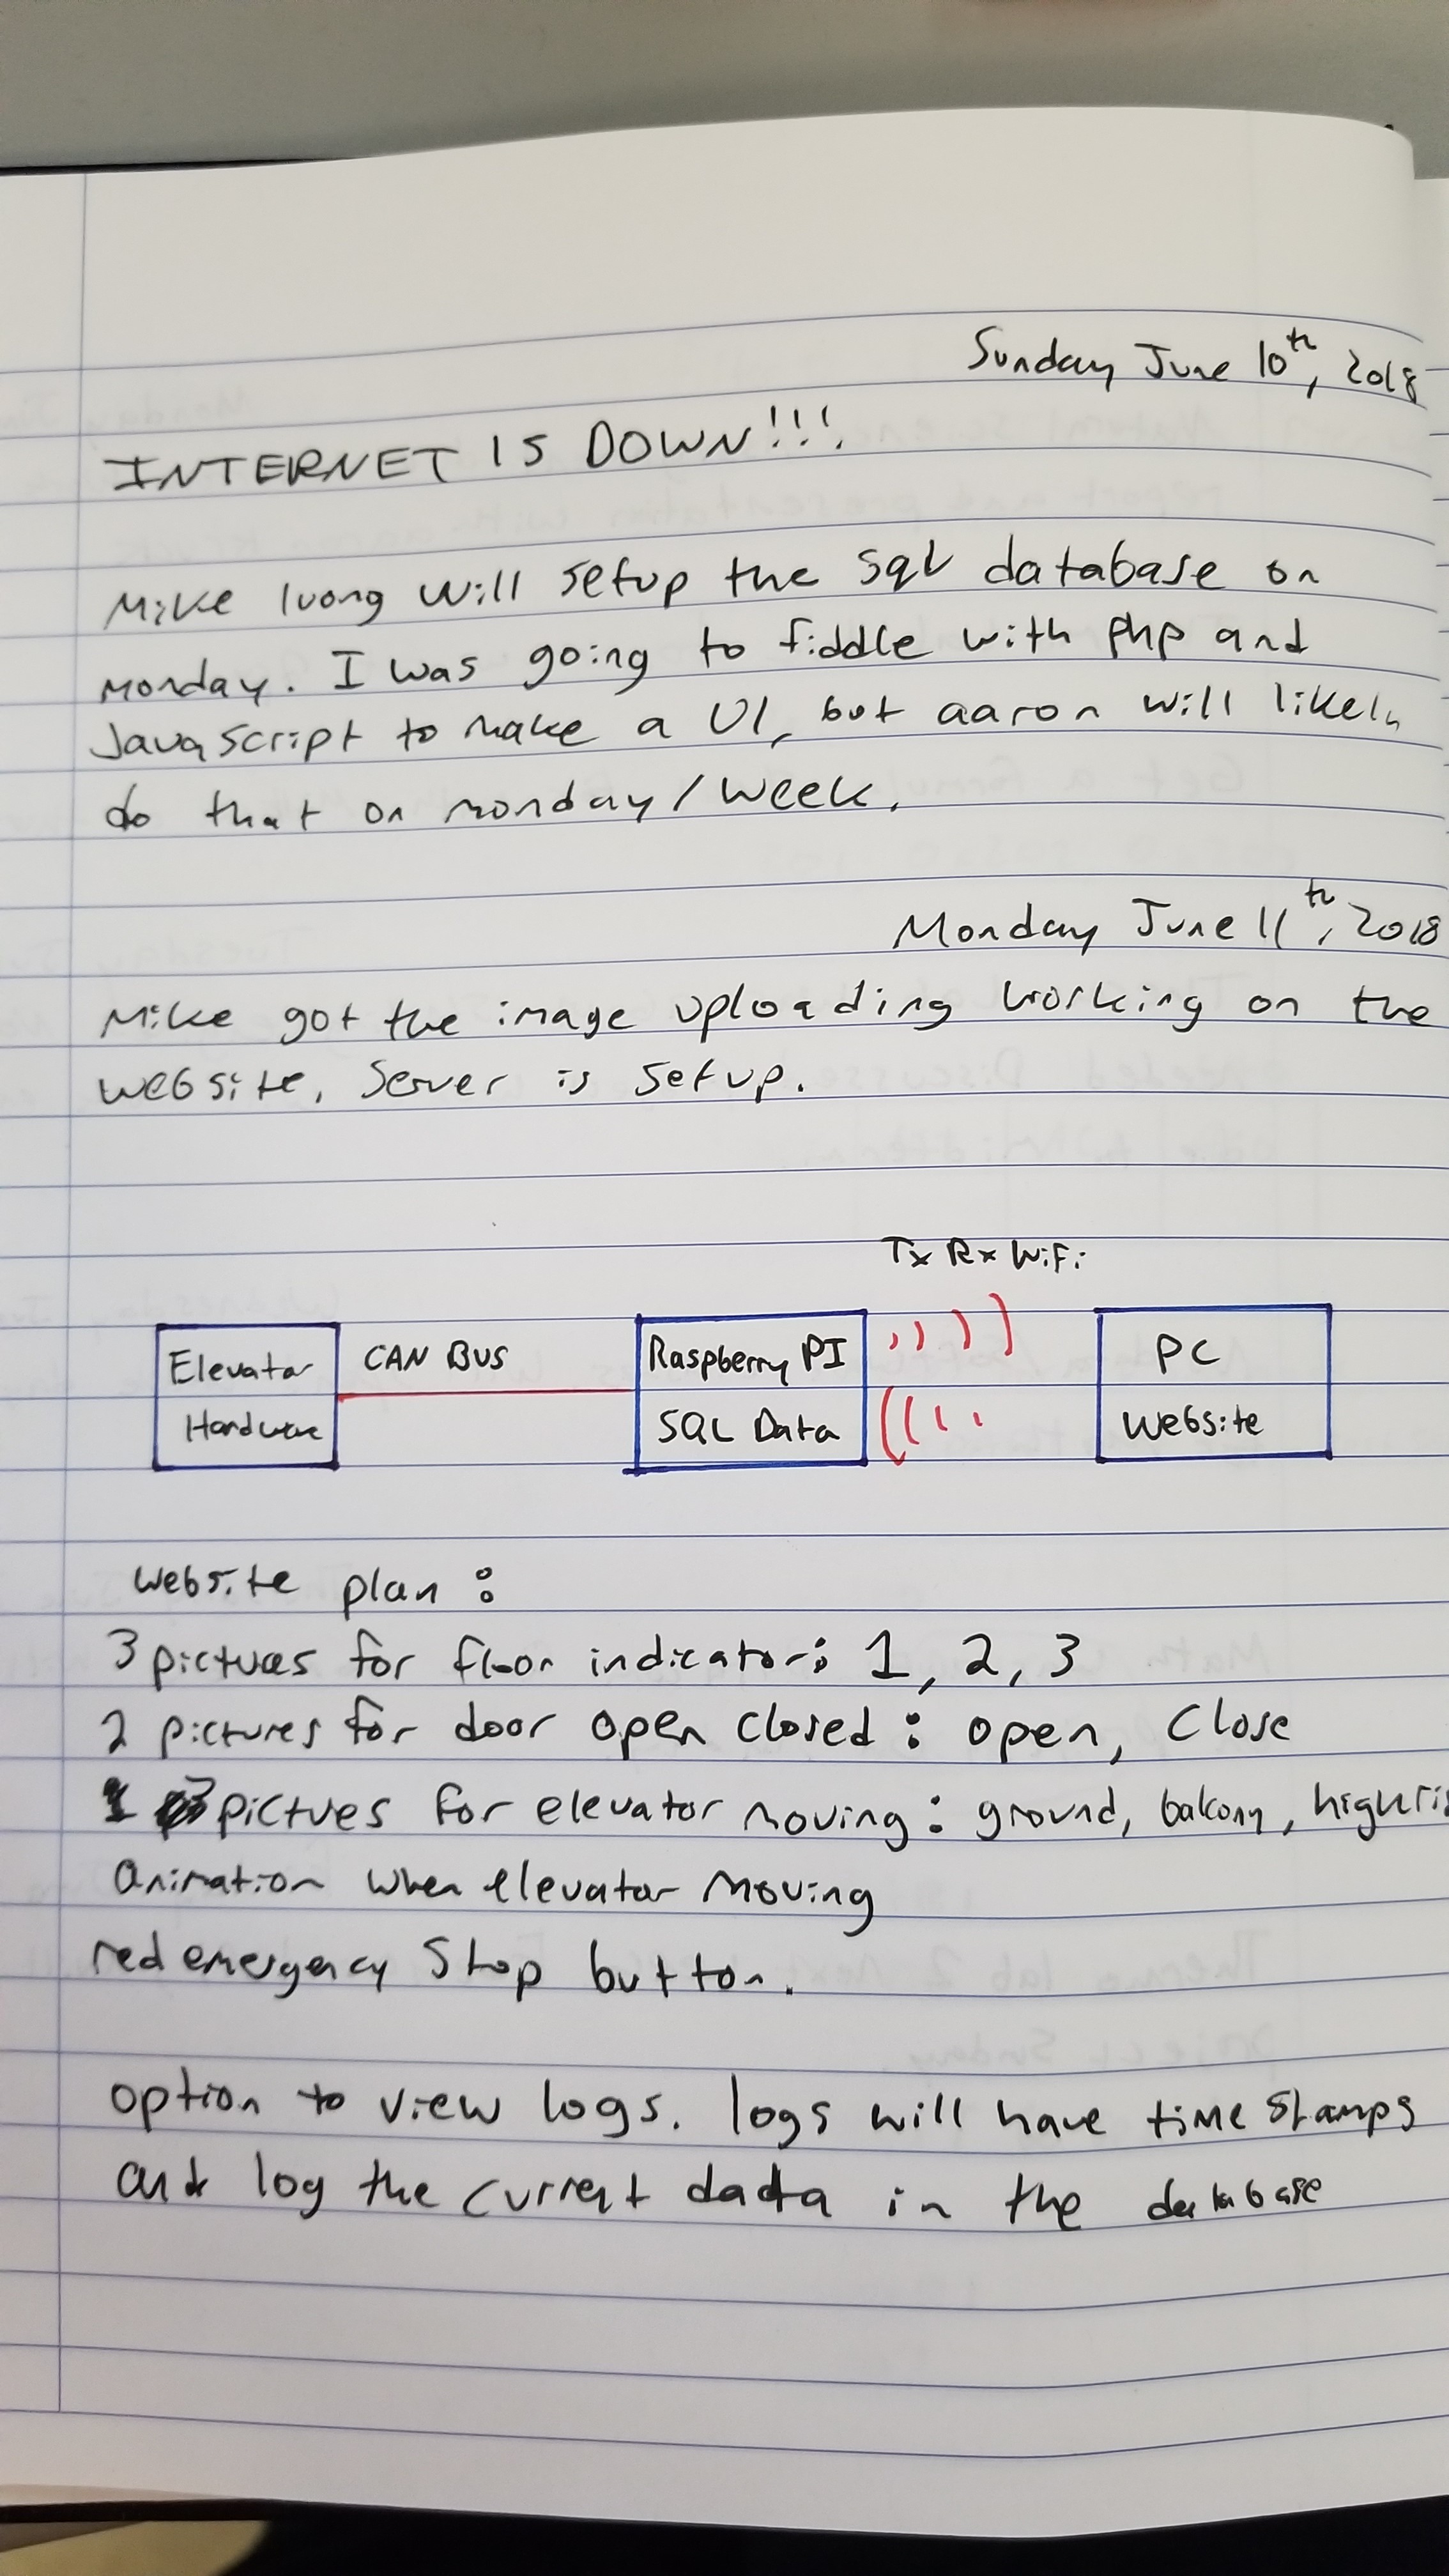 Sunday June 10th, 2018
INTERNET IS DOWN!!!
Mike luong will setup the sql database on
monday. I was going to fiddle with php and
Javascript to make a UI, but aaron will likely
do that on monday/week.
Monday June 11th, 2018
Mike got the image uploading working on the
website. Server is setup.
Tx Rx WiFi
Elevator CAN BUS Raspberry PI PC
Hardware SQL Data Website
Website plan:
3 pictures for floor indicator: 1, 2, 3
2 pictures for door open closed: open, Close
pictues for elevator moving: ground, balcony,
animation when elevator moving
red emergency Stop button.
option to view logs. logs will have time stamps
and log the current data in the database